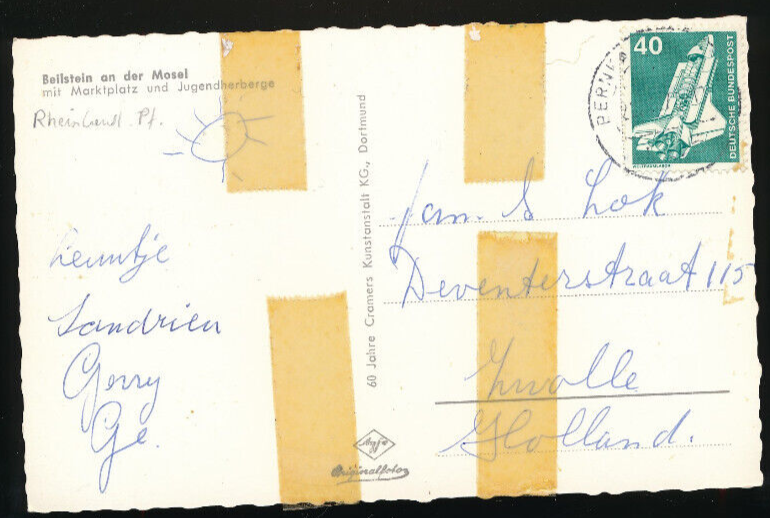 Beilstein an der Mosel
mit Marktplatz und Jugendherberge
Rheinland. Pf.
Leuntje
Sandrien
Gerry
Ge.
60 Jahre Cramers Kunstanstalt KG., Dortmund
Agfa
Originalfoto
40
DEUTSCHE BUNDESPOST
WELTRAUMLABOR
Fam. S Lok
Deventerstraat 115
Zwolle
Holland.